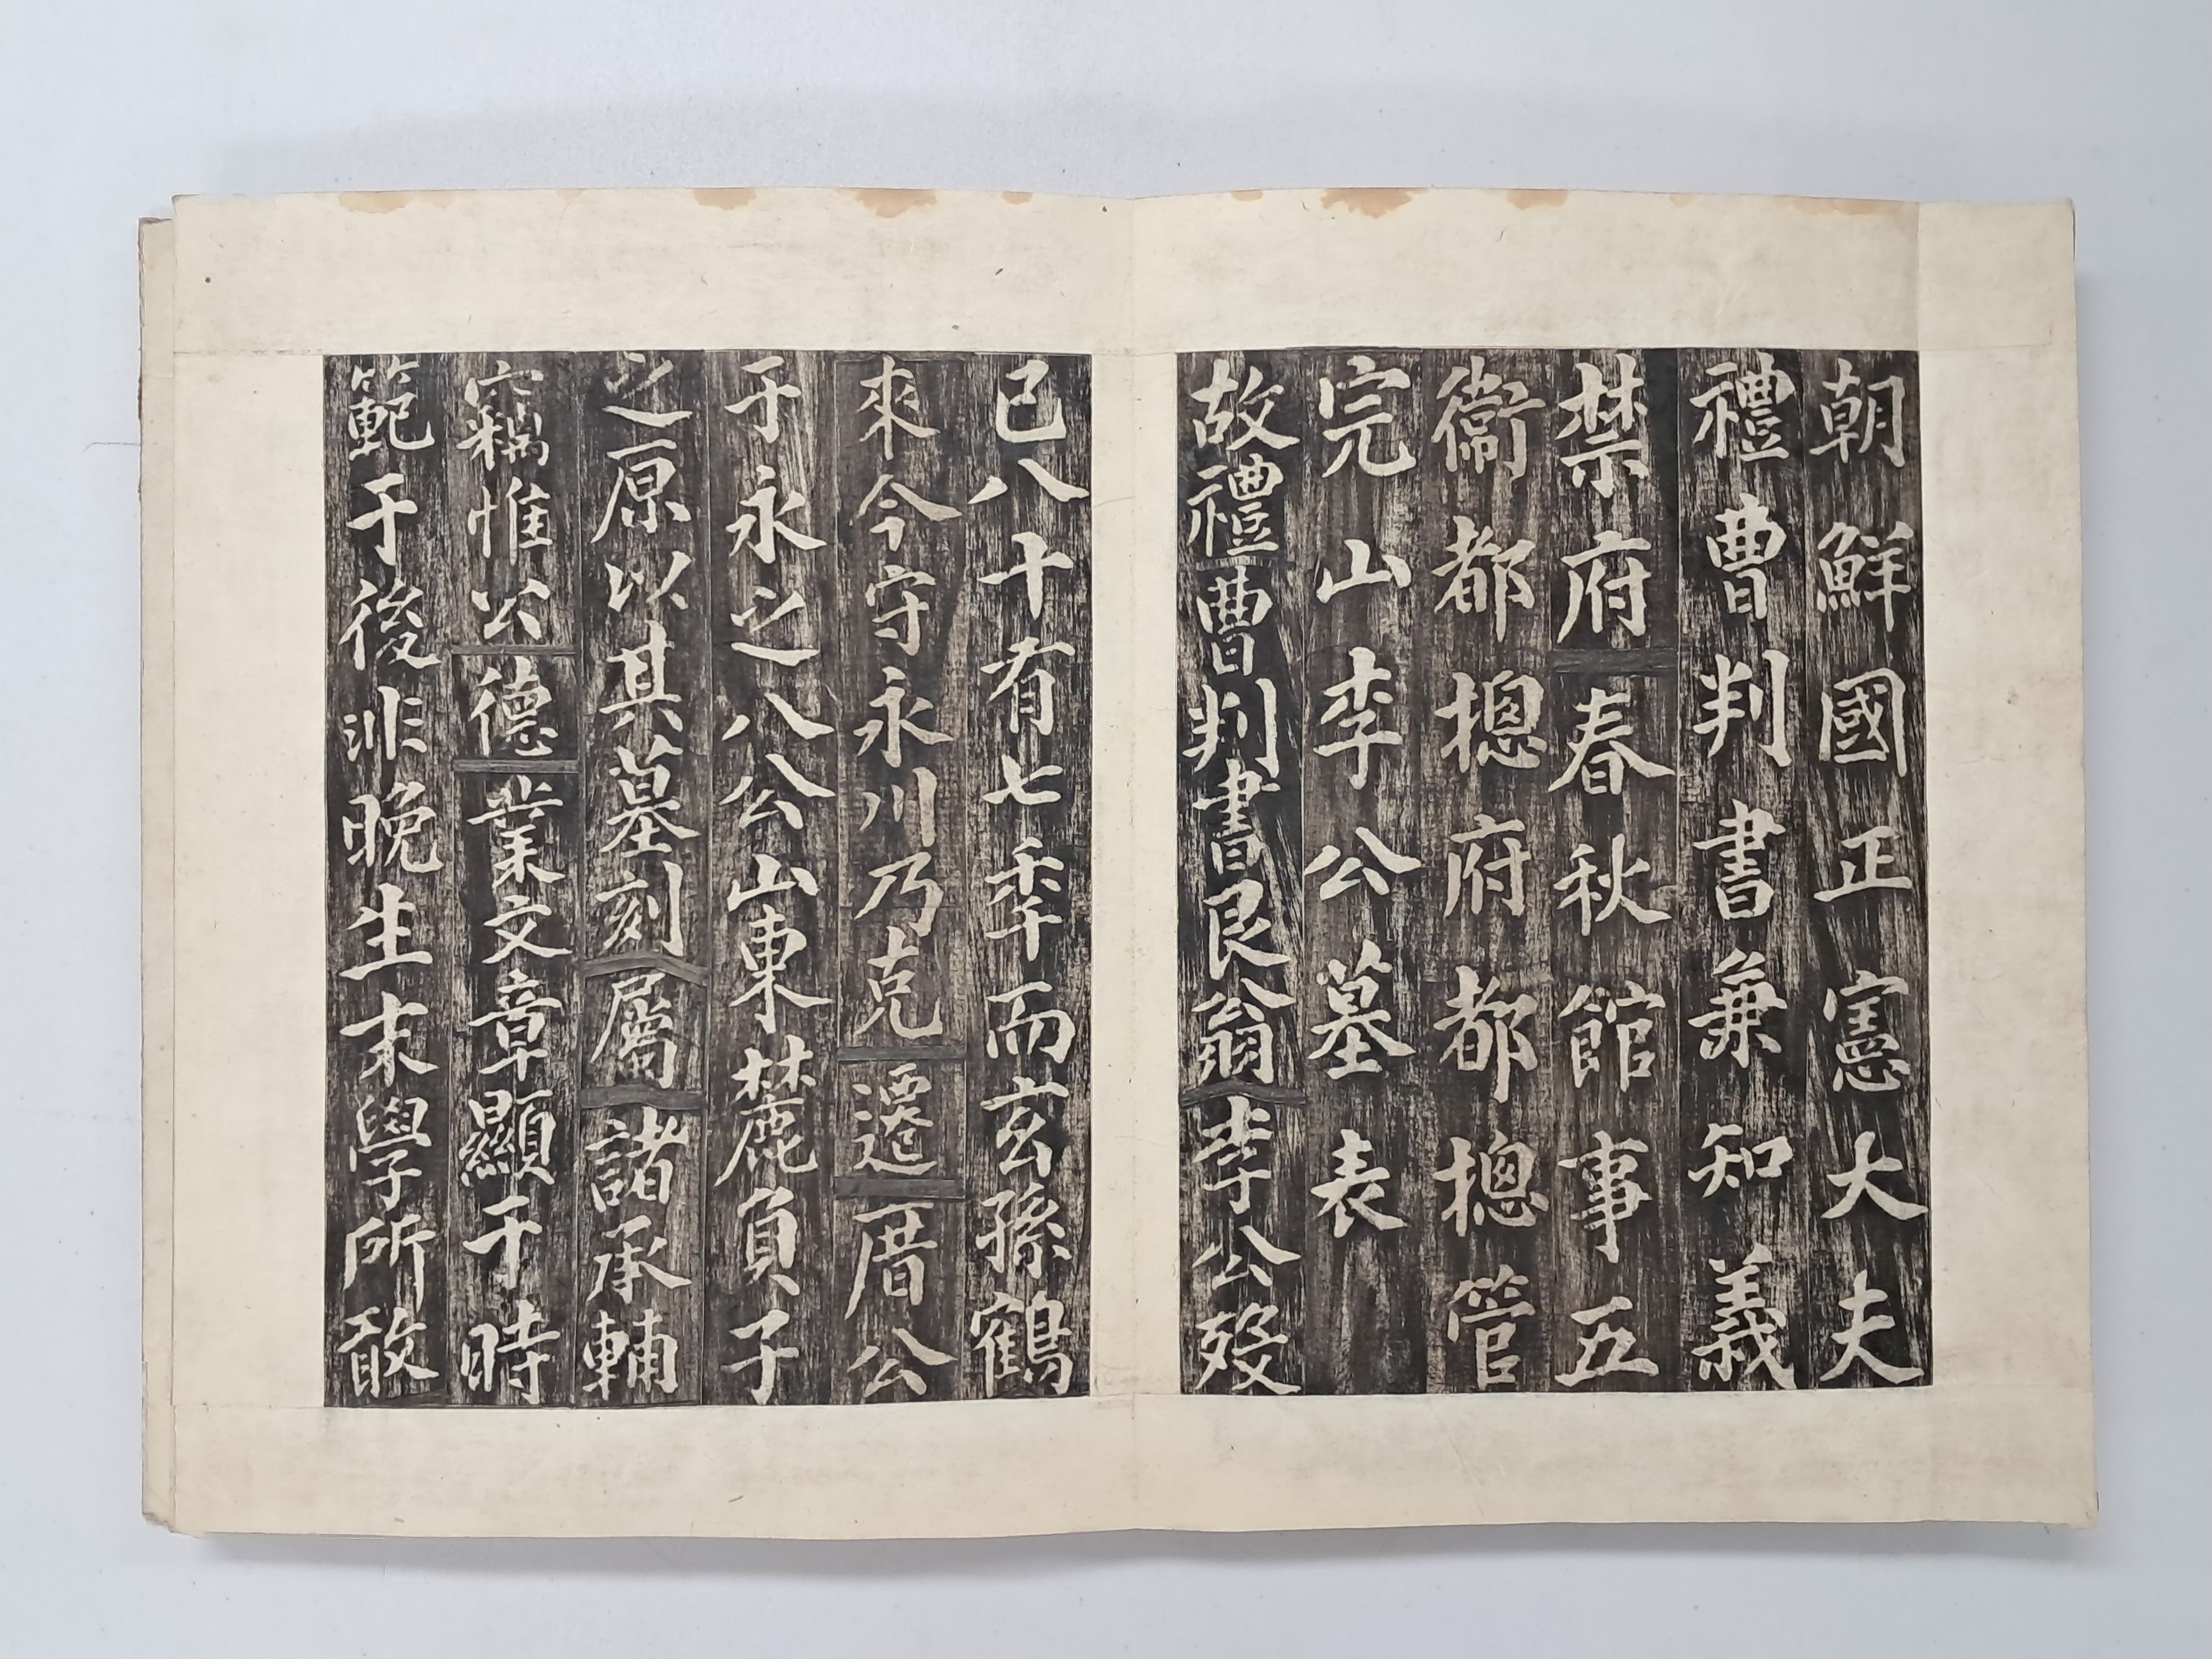 朝鮮國正憲大夫
禮曹判書兼知義
禁府春秋館事五
衛都摠府都摠管
完山李公墓表
故禮曹判書艮翁李公歿
已八十有七季而玄孫鶴
來今守永川乃克遷厝公
于永之八公山東麓負子
之原以其墓刻屬諸承輔
竊惟公德業文章顯于時
範于後非晩生末學所敢